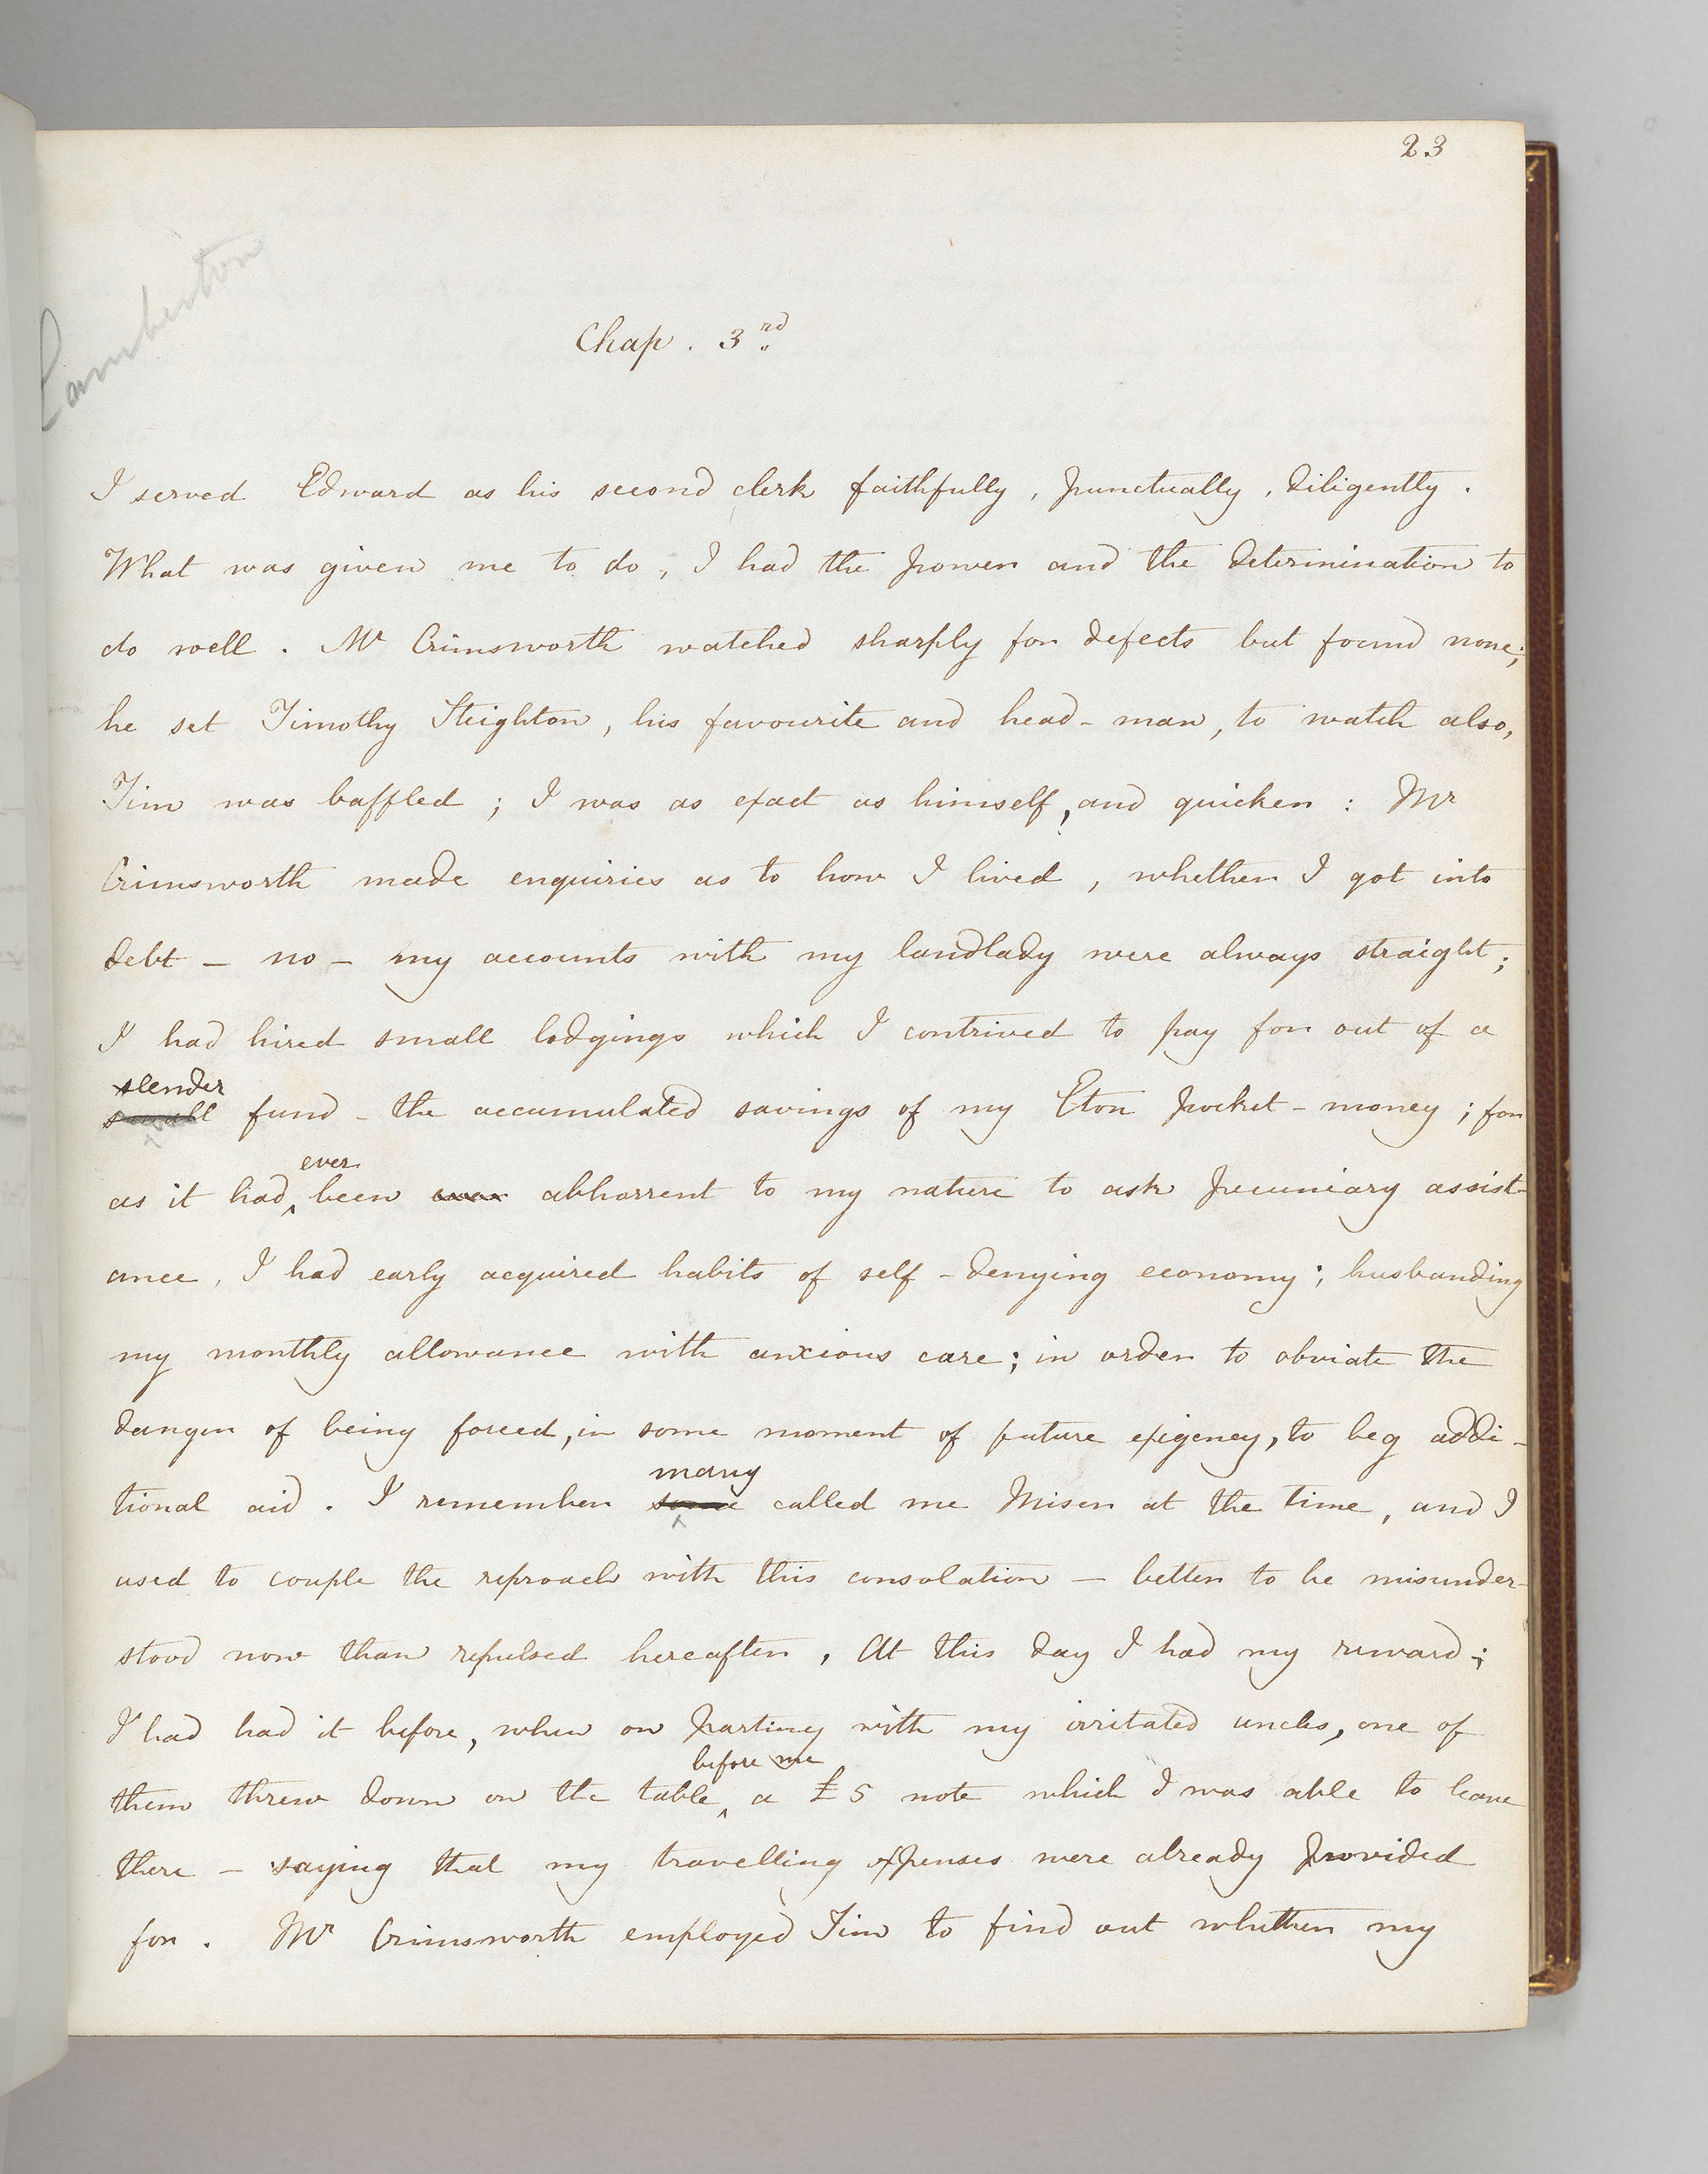 23
Lamberton
Chap. 3rd.
I served Edward as his second clerk faithfully, punctually, diligently.
What was given me to do, I had the power and the determination to
do well. Mr Crimsworth watched sharply for defects but found none;
he set Timothy Steighton, his favourite and head-man, to watch also,
Tim was baffled; I was as exact as himself, and quicker: Mr
Crimsworth made enquiries as to how I lived, whether I got into
debt – no – my accounts with my landlady were always straight;
I had hired small lodgings which I contrived to pay for out of a
slender
small fund – the accumulated savings of my Eton pocket-money; for
ever
as it had been ever abhorrent to my nature to ask pecuniary assist-
ance, I had early acquired habits of self-denying economy; husbanding
my monthly allowance with anxious care; in order to obviate the
danger of being forced, in some moment of future exigency, to beg addi-
many
tional aid. I remember some called me Miser at the time, and I
used to couple the reproach with this consolation – better to be misunder-
stood now than repulsed hereafter. At this day I had my reward;
I had had it before, when on parting with my irritated uncles, one of
before me
them threw down on the table a £5 note which I was able to leave
there – saying that my travelling expenses were already provided
for. Mr Crimsworth employed Tim to find out whether my